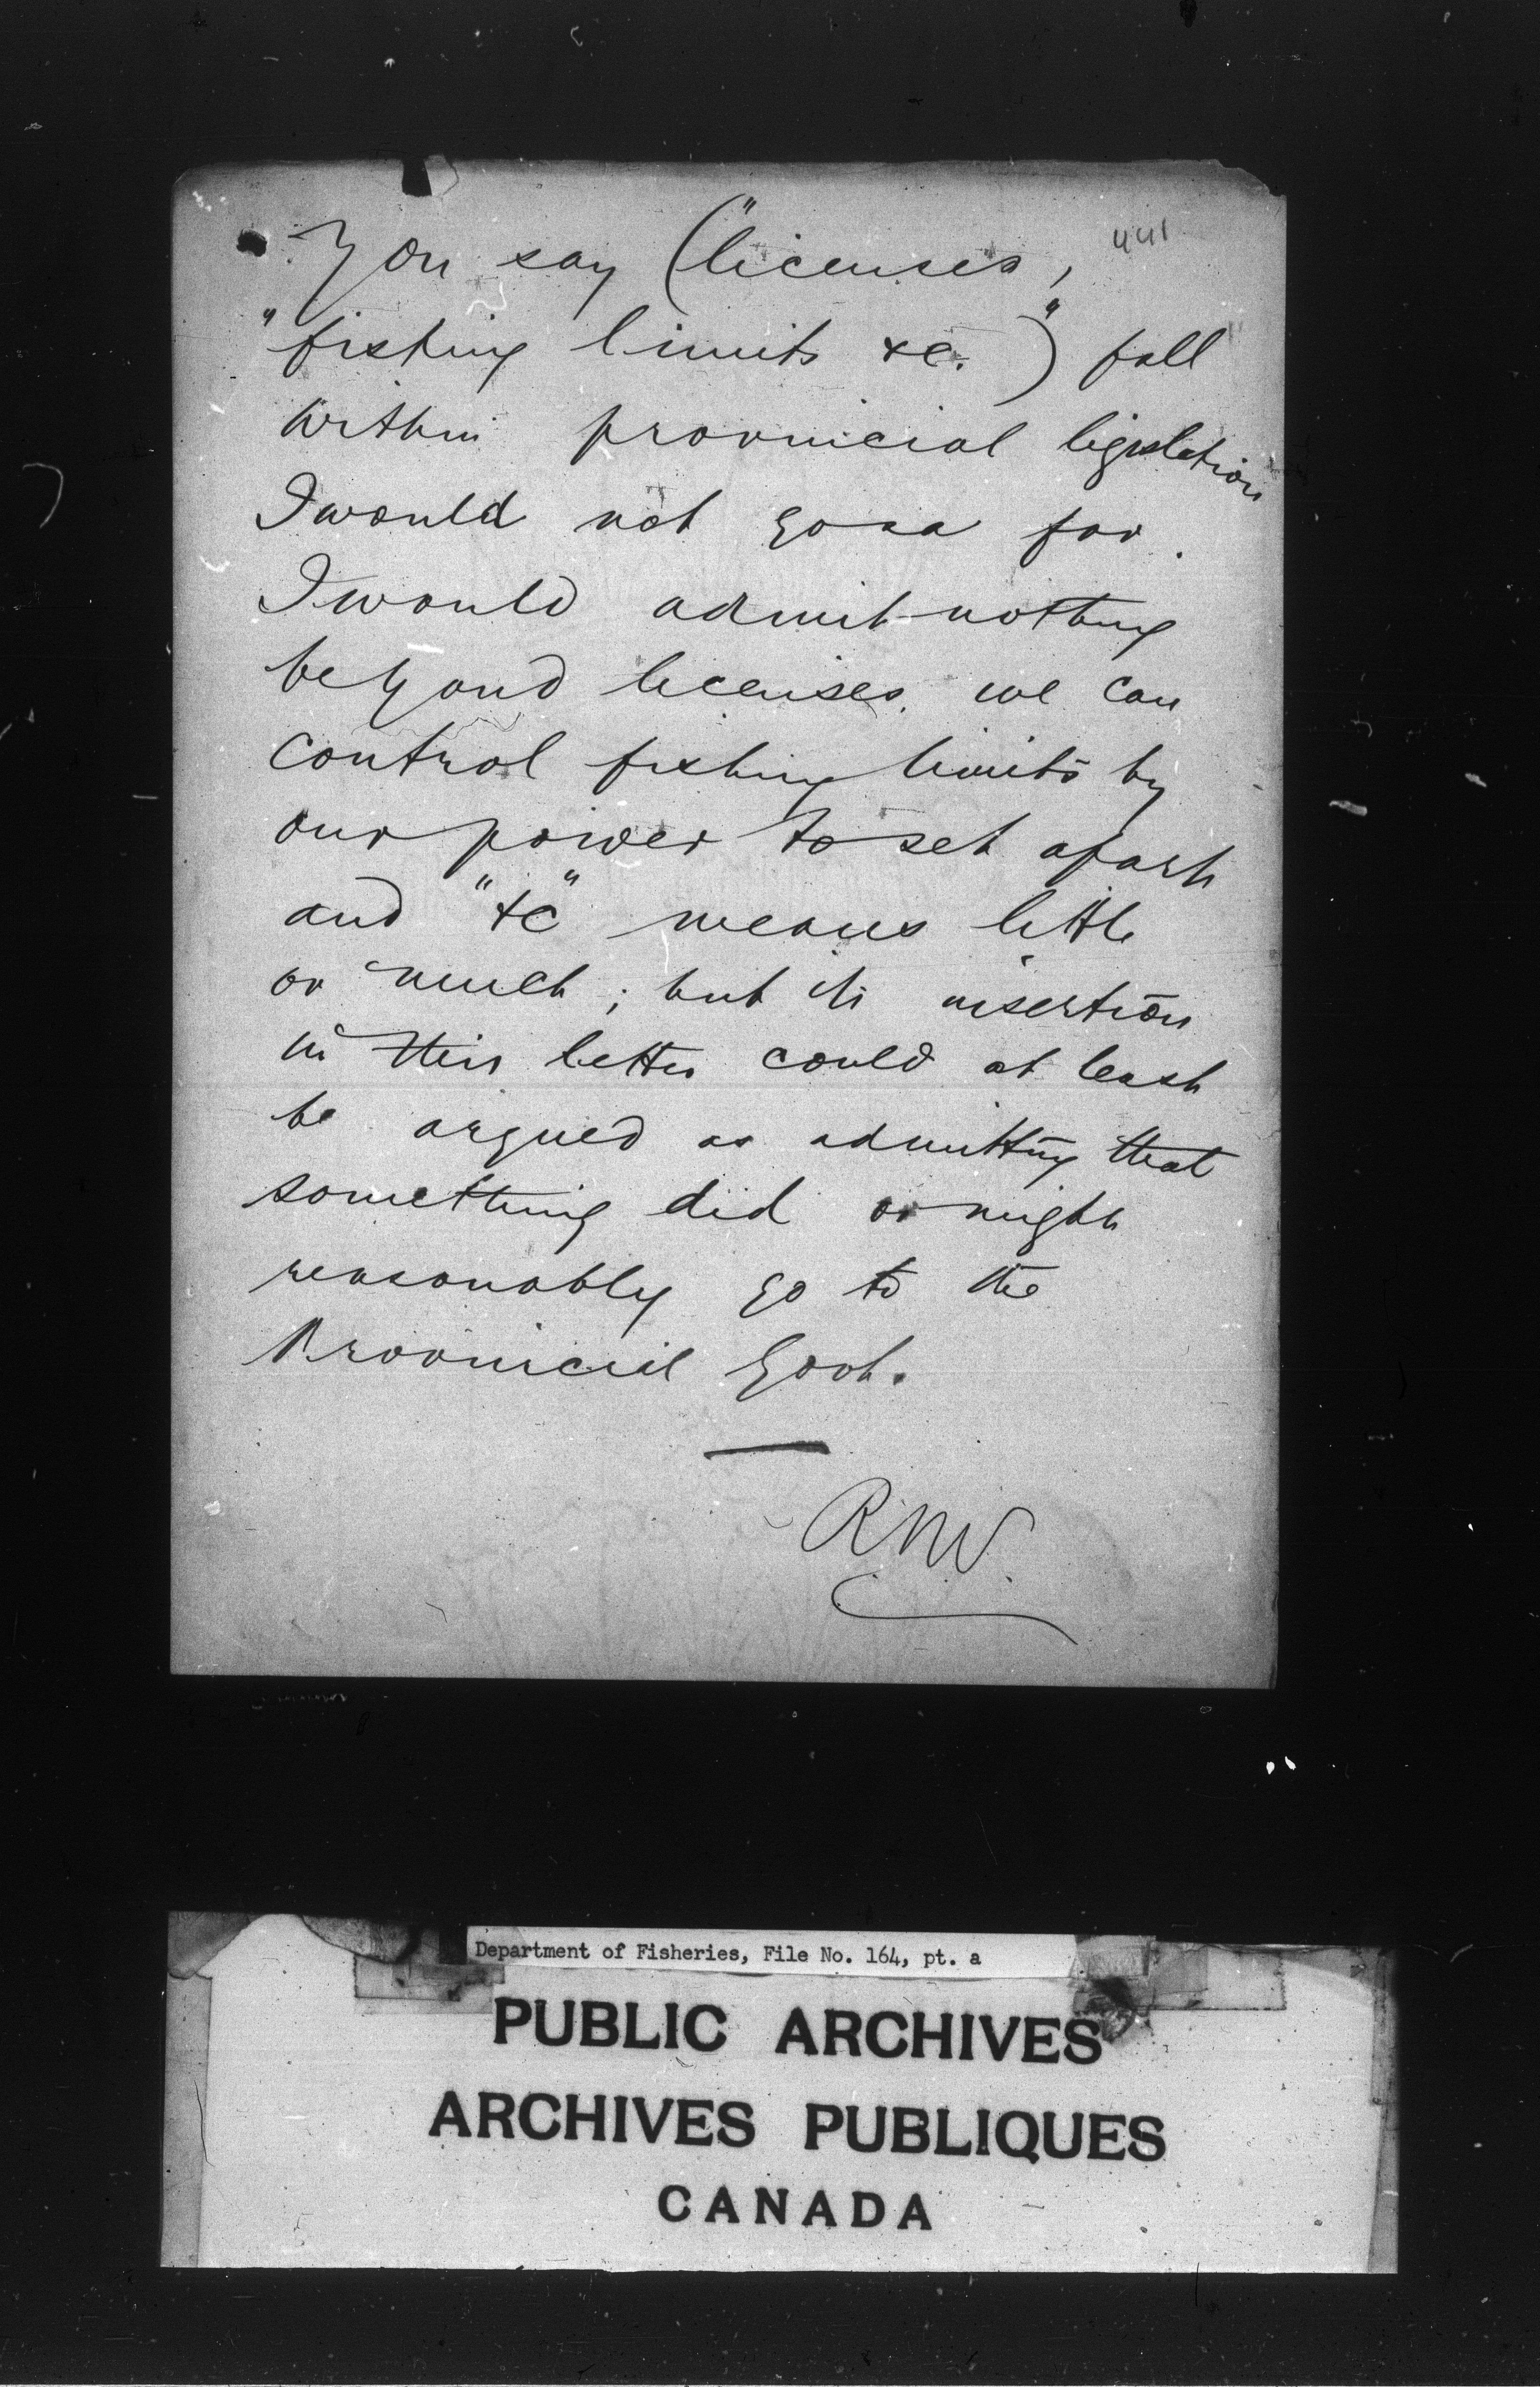 441
You say ("licenses,
"fishing limits &c.") fall
within provincial legislation
I would not go so far.
I would admit nothing
beyond licenses. we can
control fishing limits by
our power to set apart
and "&c" means little
or much; but its insertion
in this letter could at least
be argued as admitting that
something did or might
reasonably go to the
Provincial Govt.
Department of Fisheries, File No. 164, pt. a
PUBLIC ARCHIVES
ARCHIVES PUBLIQUES
CANADA